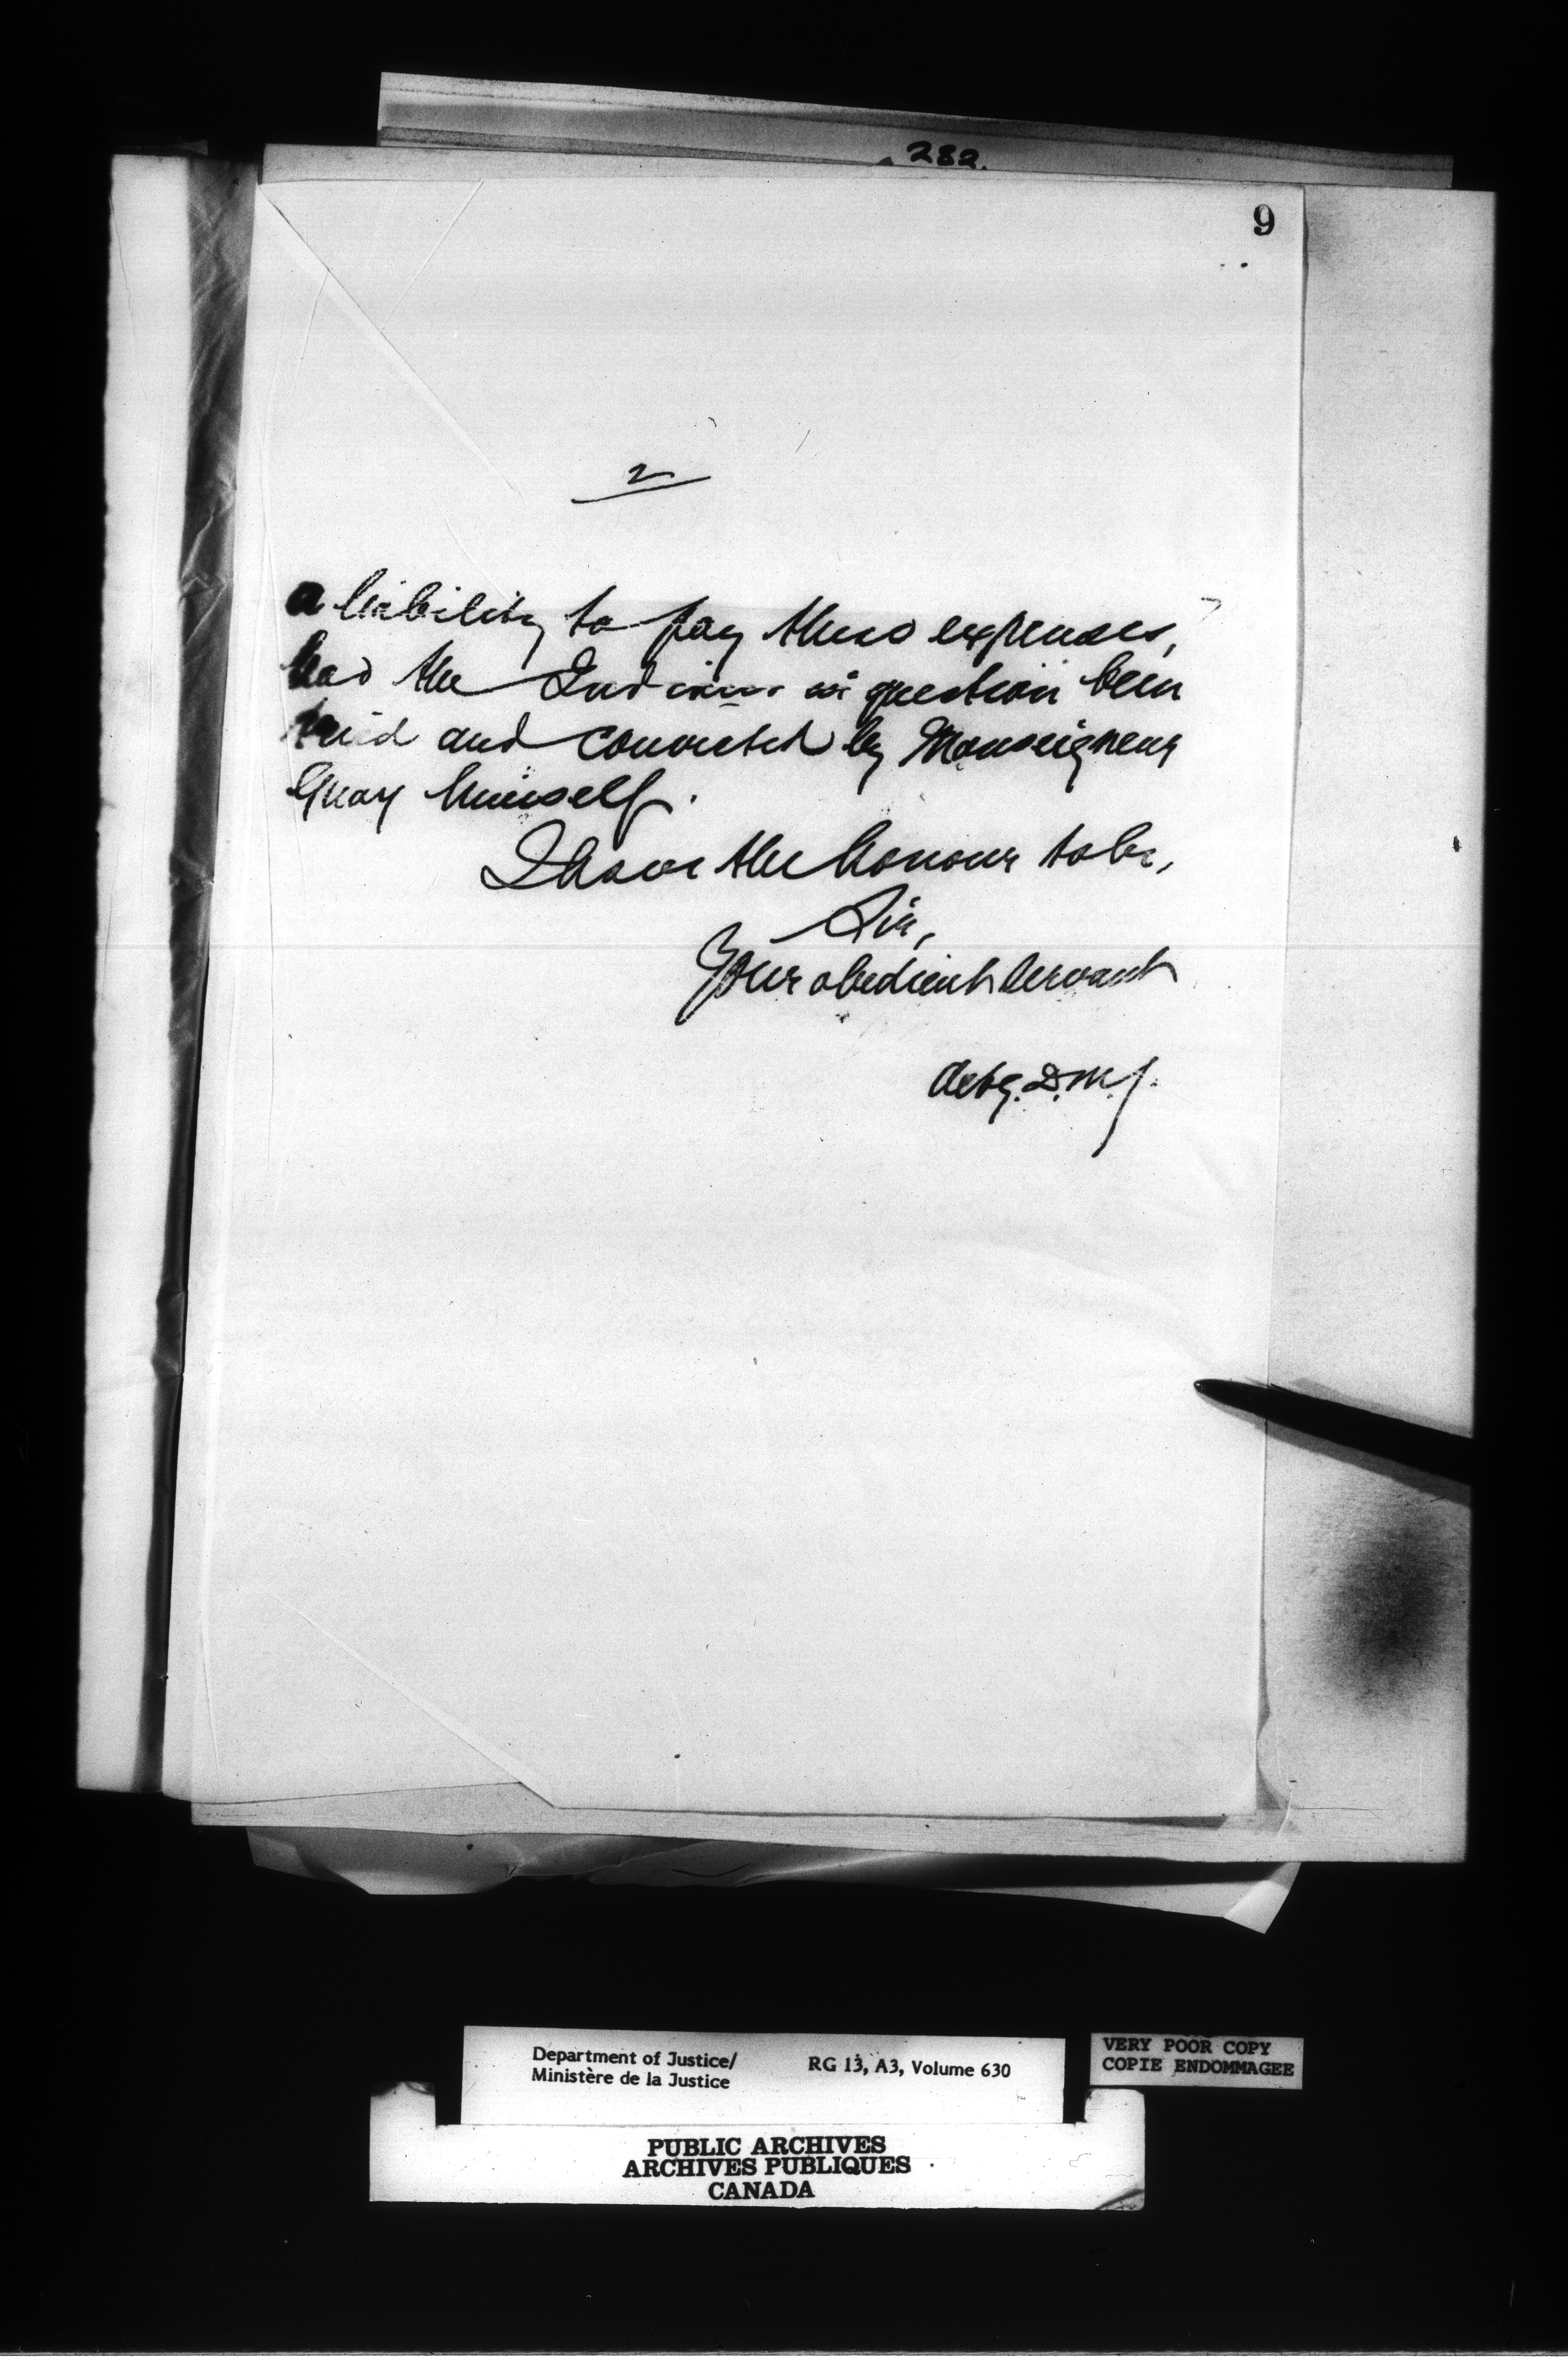 282.
9
2
a liability to pay these expenses,
had the Indians in question been
tried and convicted by Monseigneur
Guay himself.
I have the honour to be,
Sir,
Your obedient Servant
Actg. D.M.J.
Department of Justice/ RG 13, A3, Volume 630
Ministère de la Justice
VERY POOR COPY
COPIE ENDOMMAGEE
PUBLIC ARCHIVES
ARCHIVES PUBLIQUES
CANADA